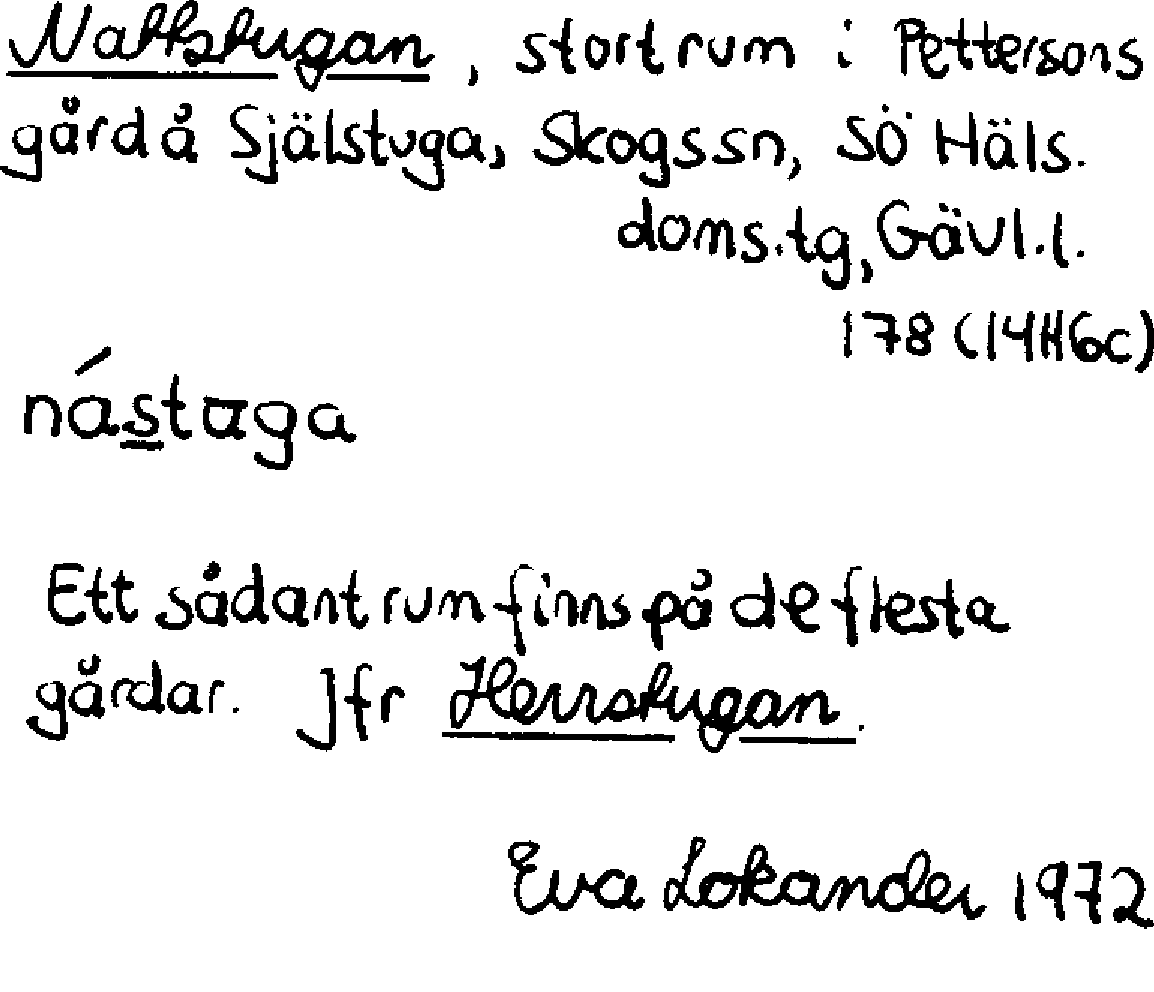 Nattstugan, stort rum i Pettersons
gård å Själstuga, Skogs sn, Sö Häls.
doms.tg, Gävl.l.
178 (14H6c)
nástaga
Ett sådant rum finns på de flesta
gårdar. Jfr Herrstugan.
Eva Lokander 1972